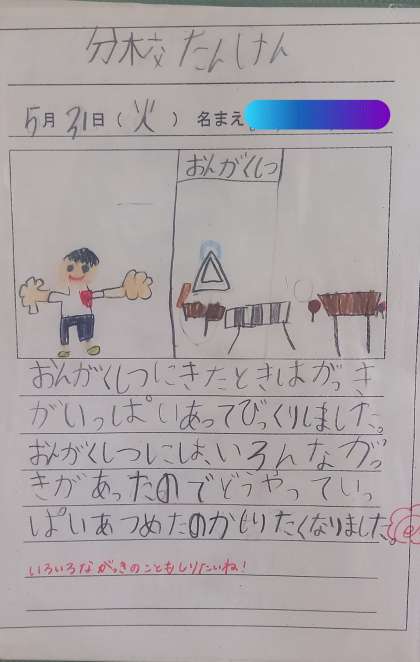 分校たんけん
5月31日(火) 名まえ
おんがくしつ
おんがくしつにきたときはがっき
がいっぱいあってびっくりしました。
おんがくしつには、いろんながっ
きがあったのでどうやっていっ
ぱいあつめたのかしりたくなりました。
いろいろながっきのこともしりたいね!